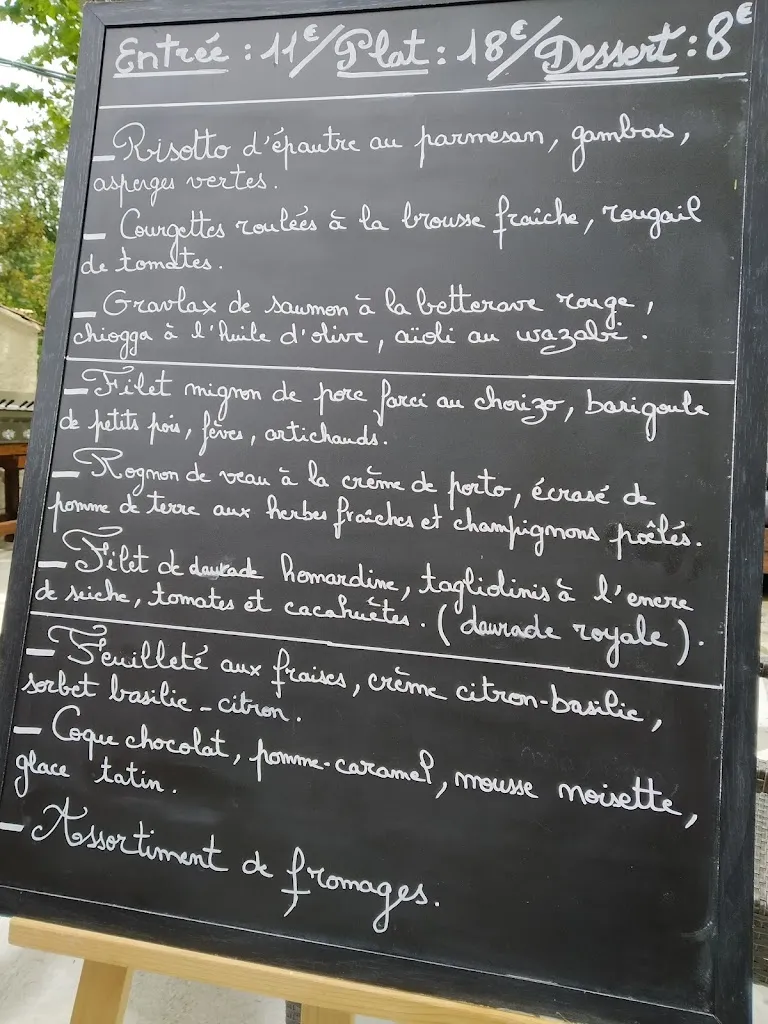 Entrée : 11€/Plat : 18€/Dessert : 8€
_ Risotto d'épautre au parmesan, gambas,
asperges vertes.
_ Courgettes roulées à la brousse fraîche, rougail
de tomates.
_ Gravlax de saumon à la betterave rouge,
chiogga à l'huile d'olive, aïoli au wazabi.
_ Filet mignon de porc farci au chorizo, barigoule
de petits pois, fèves, artichauds.
_ Rognon de veau à la crème de porto, écrasé de
pomme de terre aux herbes fraîches et champignons poêlés.
_ Filet de daurade homardine, tagliolinis à l'encre
de seiche, tomates et cacahuètes. (daurade royale).
_ Feuilleté aux fraises, crème citron-basilic,
sorbet basilic-citron.
_ Coque chocolat, pomme-caramel, mousse noisette,
glace tatin.
_ Assortiment de fromages.